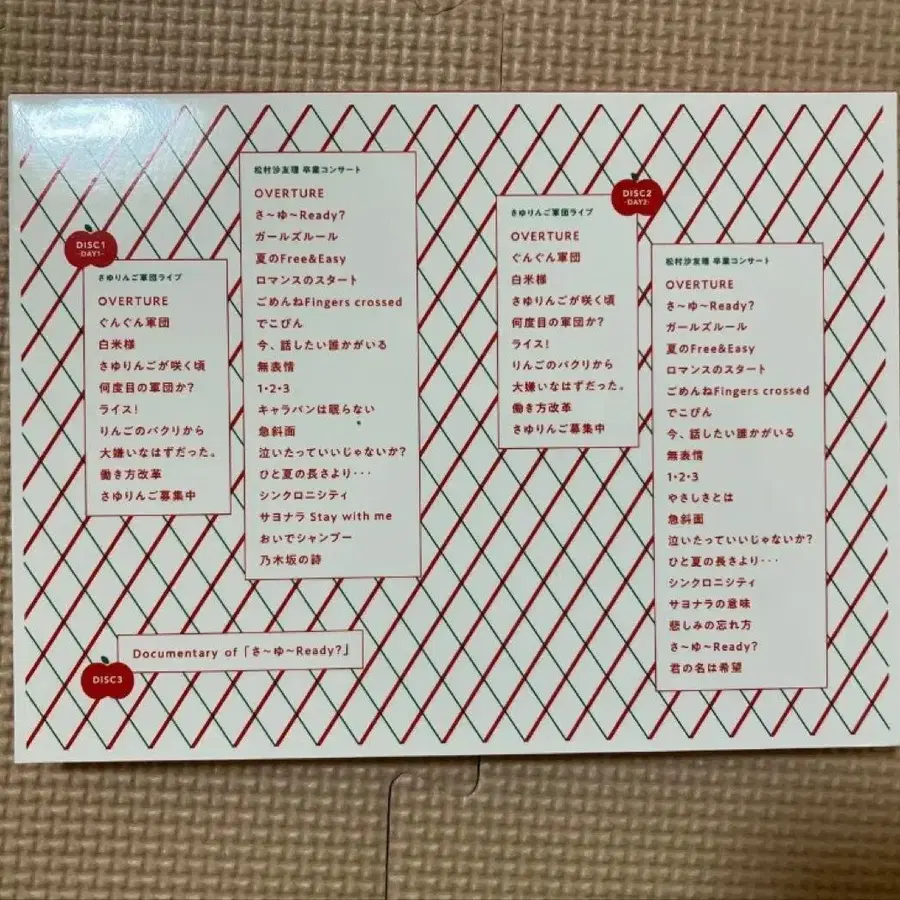 DISC1
-DAY1-
さゆりんご軍団ライブ
OVERTURE
ぐんぐん軍団
白米様
さゆりんごが咲く頃
何度目の軍団か?
ライス!
りんごのパクリから
大嫌いなはずだった。
働き方改革
さゆりんご募集中
松村沙友理 卒業コンサート
OVERTURE
さ～ゆ～Ready?
ガールズルール
夏のFree&Easy
ロマンスのスタート
ごめんねFingers crossed
でこぴん
今、話したい誰かがいる
無表情
1・2・3
キャラバンは眠らない
急斜面
泣いたっていいじゃないか?
ひと夏の長さより・・・
シンクロニシティ
サヨナラ Stay with me
おいでシャンプー
乃木坂の詩
DISC2
-DAY2-
さゆりんご軍団ライブ
OVERTURE
ぐんぐん軍団
白米様
さゆりんごが咲く頃
何度目の軍団か?
ライス!
りんごのパクリから
大嫌いなはずだった。
働き方改革
さゆりんご募集中
松村沙友理 卒業コンサート
OVERTURE
さ～ゆ～Ready?
ガールズルール
夏のFree&Easy
ロマンスのスタート
ごめんねFingers crossed
でこぴん
今、話したい誰かがいる
無表情
1・2・3
やさしさとは
急斜面
泣いたっていいじゃないか?
ひと夏の長さより・・・
シンクロニシティ
サヨナラの意味
悲しみの忘れ方
さ～ゆ～Ready?
君の名は希望
DISC3
Documentary of「さ～ゆ～Ready?」